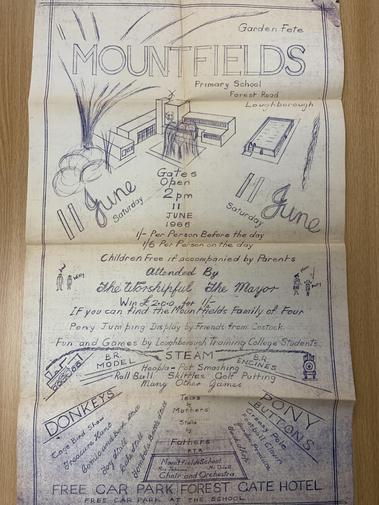 Garden Fete
MOUNTFIELDS
Primary School
Forest Road
Loughborough
11 June
Saturday
Gates
Open
2pm
11
JUNE
1966
11 June
Saturday
1/- Per Person Before the day
1/6 Per Person on the day
Children Free if accompanied by Parents
Attended By
The Worshipful The Mayor
Win £2-0-0 for 1/-
If you can find the Mountfields Family of Four
Pony Jumping Display by Friends from Costock.
Fun and Games by Loughborough Training College Students
B.R.
MODEL
STEAM
B.R.
ENGINES
Hoopla - Pot Smashing
Roll Ball Skittles Golf Putting
Many Other Games
DONKEYS
PONY
Cage Bird Show
Treasure Hunt
Teas
by
Mothers
Stalls
by
Fathers
P.T.A.
Greasy Pole
Mountfields School
Choir and Orchestra
FREE CAR PARK FOREST GATE HOTEL
FREE CAR PARK AT THE SCHOOL